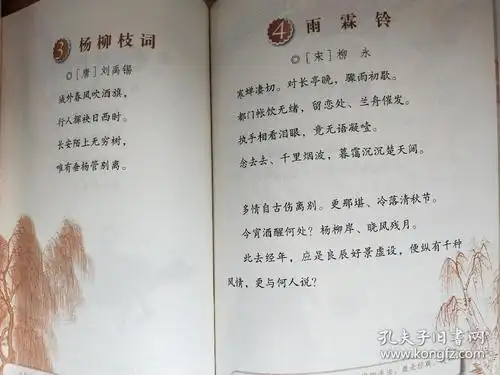 3 杨柳枝词
◎［唐］刘禹锡
城外春风吹酒旗，
行人挥袂日西时。
长安陌上无穷树，
唯有垂杨管别离。
4 雨霖铃
◎［宋］柳永
寒蝉凄切。对长亭晚，骤雨初歇。
都门帐饮无绪，留恋处、兰舟催发。
执手相看泪眼，竟无语凝噎。
念去去、千里烟波，暮霭沉沉楚天阔。
多情自古伤离别。更那堪、冷落清秋节。
今宵酒醒何处？杨柳岸、晓风残月。
此去经年，应是良辰好景虚设，便纵有千种
风情，更与何人说？
孔夫子旧书网
www.kongfz.com